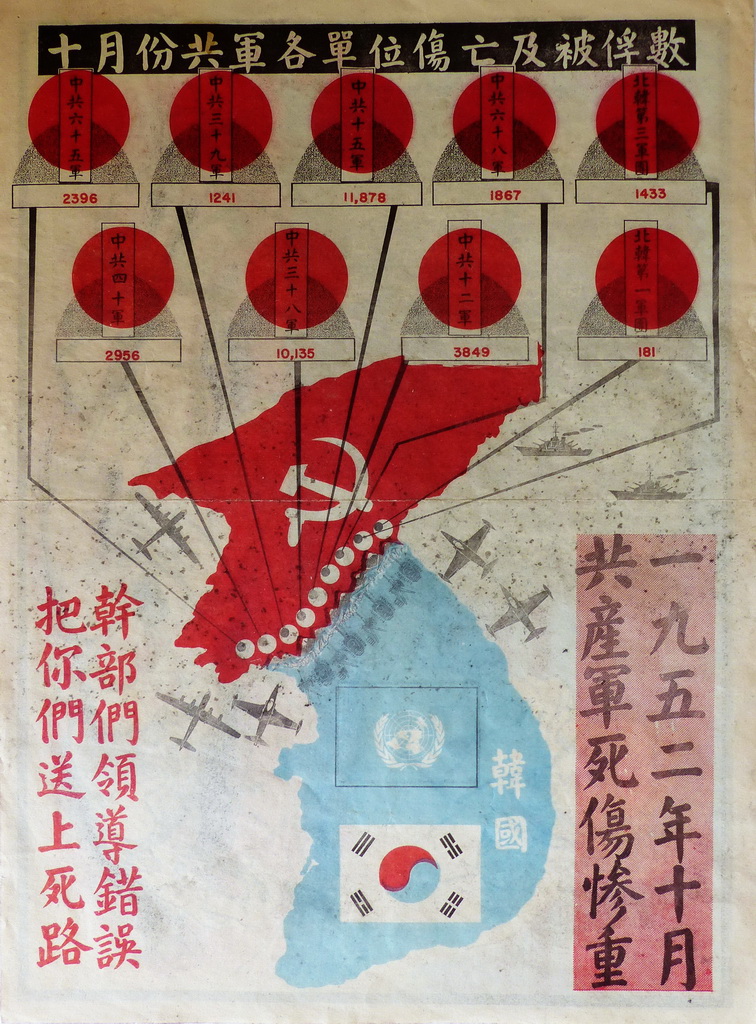 十月份共軍各單位傷亡及被俘數
中共六十五軍
2396
中共三十九軍
1241
中共十五軍
11,878
中共六十八軍
1867
北韓第三軍團
1433
中共四十軍
2956
中共三十八軍
10,135
中共十二軍
3849
北韓第一軍團
181
一九五二年十月
共產軍死傷慘重
韓國
幹部們領導錯誤
把你們送上死路